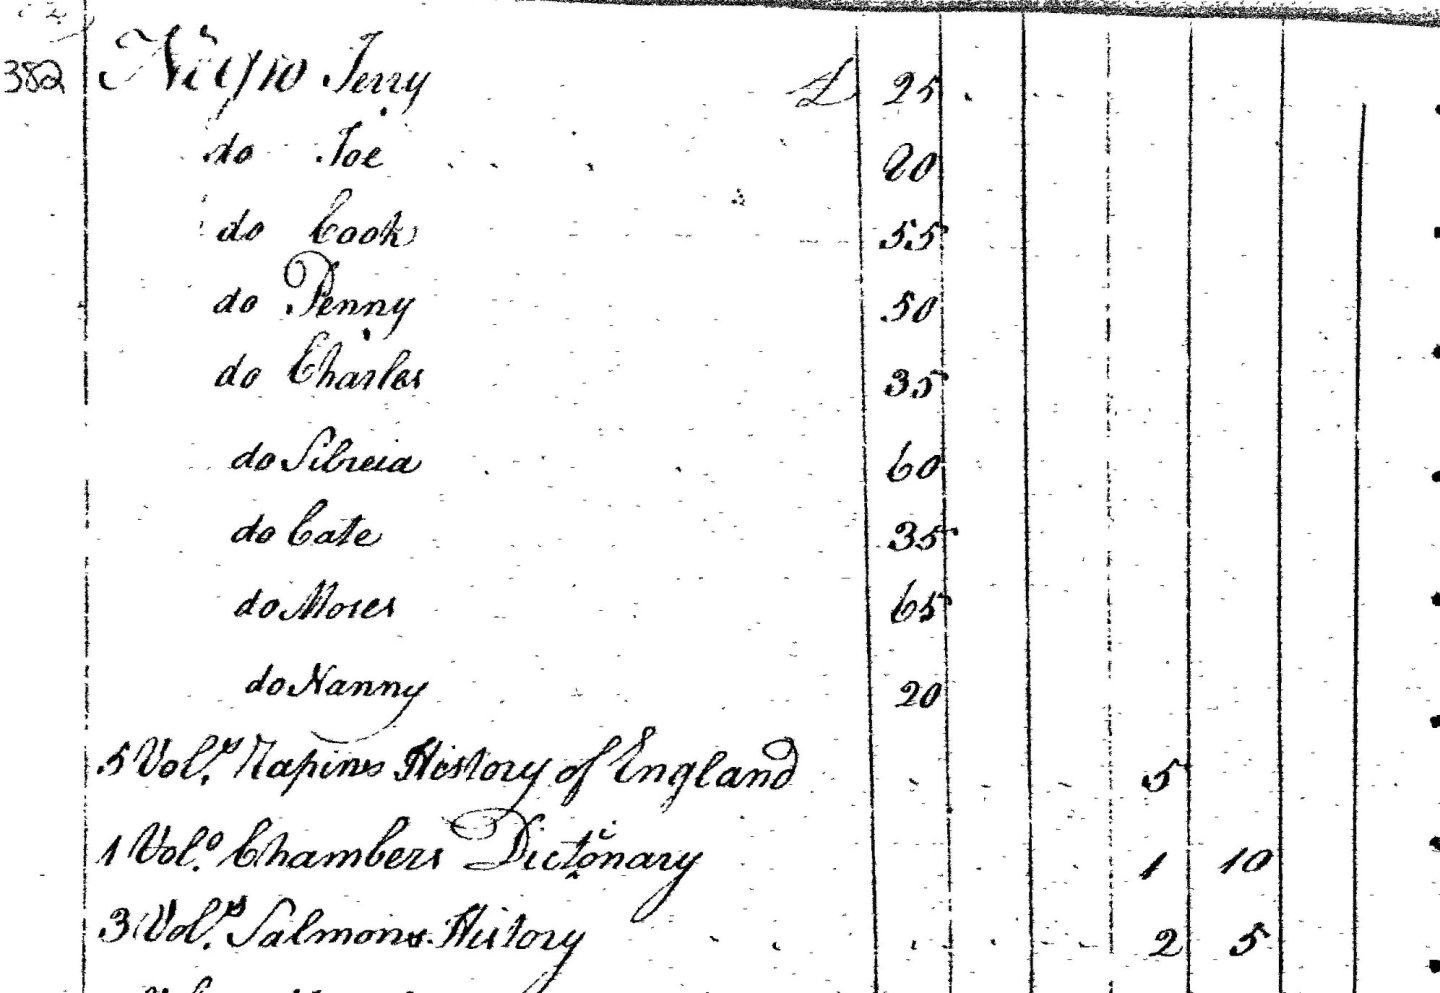 382 Negro Jerry £ 25
do Joe 20
do Cook 55
do Penny 50
do Charles 35
do Silveia 60
do Cate 35
do Moses 65
do Nanny 20
5 Vol.s Rapins History of England 5
1 Vol.o Chambers Dictionary 1 10
3 Vol.s Salmons History 2 5